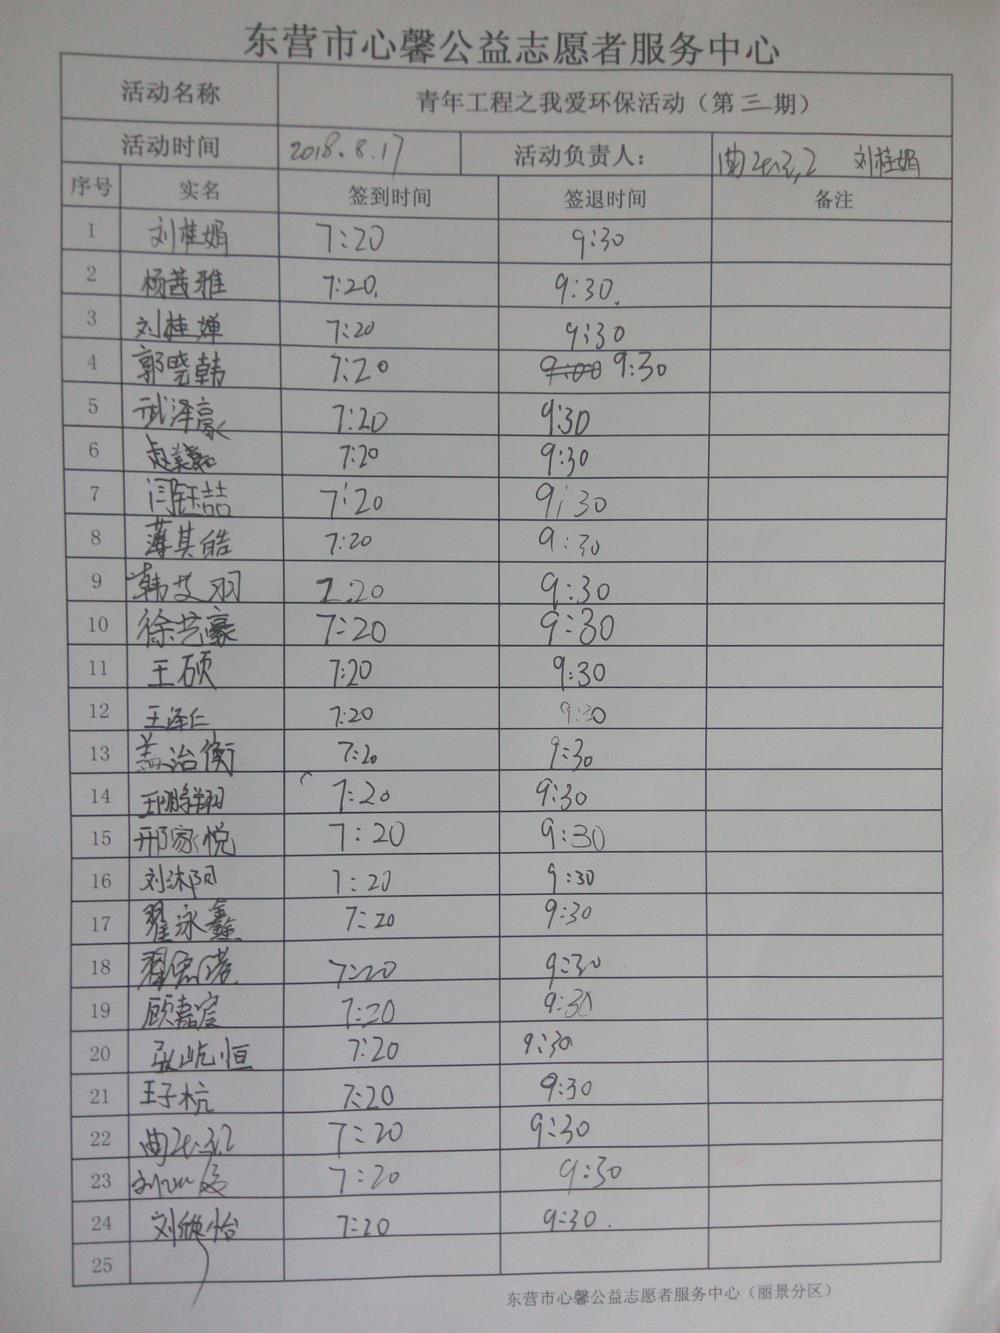 东营市心馨公益志愿者服务中心
活动名称 青年工程之我爱环保活动（第三期）
活动时间 2018.8.17 活动负责人： 刘桂娟
序号 实名 签到时间 签退时间 备注
1 刘桂娟 7:20 9:30
2 杨茜雅 7:20. 9:30.
3 刘桂婵 7:20 9:30
4 郭晓韩 7:20 9:00 9:30
5 武泽豪 7:20 9:30
6 7:20 9:30
7 闫钰喆 7:20 9:30
8 薄其皓 7:20 9:30
9 韩艾羽 7:20 9:30
10 徐艺豪 7:20 9:30
11 王硕 7:20 9:30
12 王泽仁 7:20 9:30
13 盖治衡 7:20 9:30
14 王鹏翔 7:20 9:30
15 邢家悦 7:20 9:30
16 刘沐阳 7:20 9:30
17 翟泳鑫 7:20 9:30
18 7:20 9:30
19 顾嘉宸 7:20 9:30
20 张屹恒 7:20 9:30
21 王子杭 7:20 9:30
22 7:20 9:30
23 7:20 9:30
24 刘焕怡 7:20 9:30.
25
东营市心馨公益志愿者服务中心（丽景分区）